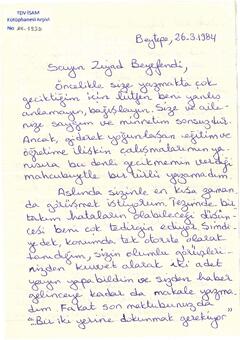 TDV İSAM
Kütüphanesi Arşivi
No
Beytepe, 26.3.1984
Sayın Ziyad Beyefendi,
Öncelikle size yazmakta çok
geciktiğim için lütfen beni yanlış
anlamayın, bağışlayın. Size ve aile-
nize saygım ve minnetim sonsuzdur.
Ancak, giderek yoğunlaşan eğitim ve
öğretime ilişkin çalışmalarımın ya-
nısıra, bu denli gecikmemin verdiği
mahcubiyetle bir türlü yazamadım.
Aslında sizinle en kısa zaman-
da görüşmek istiyorum. Tezimde bir
takım hataların olabileceği düşün-
cesi beni çok tedirgin ediyor. Şimdi-
ye dek, konumda tek otorite olarak
tanıdığım, sizin olumlu görüşleri-
nizden kuvvet alarak iki adet
yayın yapabildim ve sizden haber
gelinceye kadar da makale yazma-
dım. Fakat son mektubunuzda
"Bir iki yerine dokunmak gerekiyor"